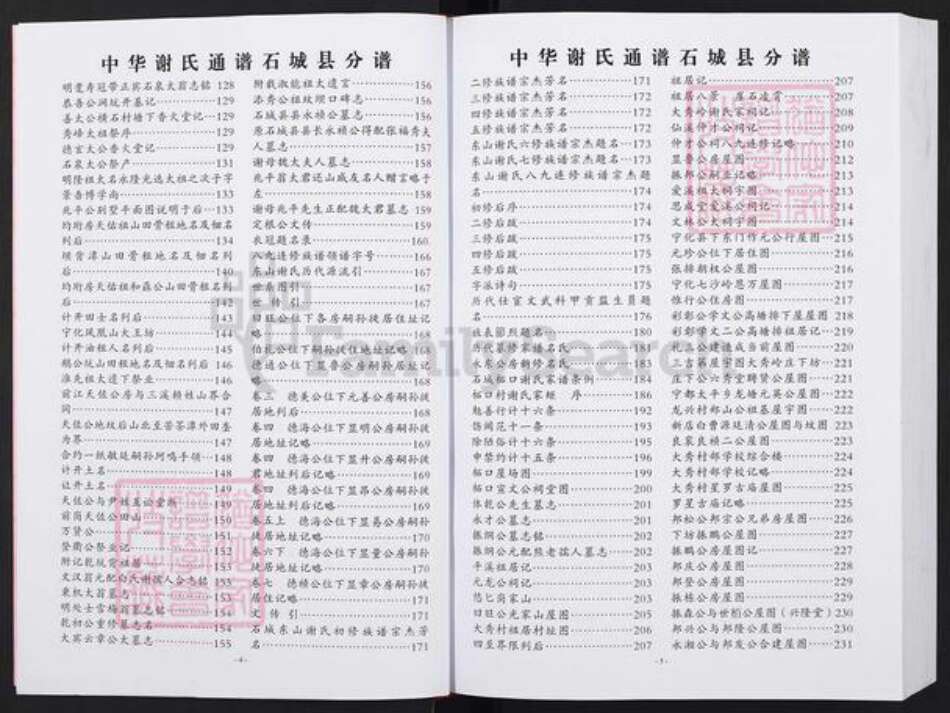 中华谢氏通谱石城县分谱
明叟寿冠带正宾石泉大翁志铭 128
恭吾公洞坑齐墓记……129
善太公横石村塘下香火堂记…129
秀峰大祖祭序……129
德宣太公香火堂记……129
石泉太公祭产……131
明隆祖大名永隆光远大祖之次子字
景吾博学尚……133
兆平公别墅平面图说明于后…133
均珩房天佑祖山田骨租地名及佃名
列后……134
后……140
均珩房天佑祖和磊公山田骨租名列
后……142
计开田士名列后……143
宁化凤凰山大王坊……144
计开油租人名列后……145
鹅公坑山田租地名及佃名列后 146
淮先祖太遗下祭业……146
前江天佐公房与三溪赖姓山界合
同……147
天佐公地坟后山北至苦茶潭外田垄
为界……147
合约一纸敏廷嗣孙阿鸣手领…148
计开土名……148
让开土名……149
天佐公与尹姓互讼堂断……149
前岗天佐公田山……150
万贤公……151
登衢公祭业记……152
附记乾坑贲祖居……153
文汉翁元配白氏谢孺人合志铭 153
东机大翁墓志……153
明处士雪梅翁墓志铭……154
乾初公重修墓志名……154
大宾云章公大墓志……155
附载淑能祖大遗言……156
添秀公祖坟坝口碑志……156
石城县县永祯公墓志……156
原石城县县长永祯公得配张福秀夫
人墓志……157
谢母魏太夫人墓志……158
兆平翁太君还山戚友名人赠言略于
左……158
谢母兆平先生正配魏大君墓志 159
定根公文传……159
衣冠题名录……160
八九连修族谱领谱字号……166
东山谢氏历代源流引……167
世系图引……167
世传引……167
曰旺公位下各房嗣孙徙居住址记
略……168
伯礼公位下嗣孙徙住地址记略 168
德通公位下显普公房嗣孙居址记
……168
卷三 德美公位下元善公房嗣孙徙
居地列后……168
卷四 德海公位下显明公房嗣孙徙
居地址记略……169
卷四 德海公位下显升公房嗣孙徙
居地址列后记略……169
卷四 德海公位下显昂公房嗣孙徙
居地址列后记略……169
卷五上 德海公位下显易公房嗣孙
徙居地址记略……170
卷六下 德海公位下显量公房嗣孙
徙居地址记略……170
卷七 德横公位下显章公房嗣孙徙
居住记略……171
文传引……171
石城东山谢氏初修族谱宗杰芳
名……171
-4-
中华谢氏通谱石城县分谱
二修族谱宗杰芳名……171
三修族谱宗杰芳名……172
四修族谱宗杰芳名……172
五修族谱宗杰芳名……172
东山谢氏六修族谱宗杰题名…173
东山谢氏七修族谱宗杰题名…173
东山谢氏八九连修族谱宗杰题
名……174
初修后序……174
二修后跋……174
三修后跋……175
四修后跋……175
五修后跋……175
字派诗句……175
历代仕宦文武科甲贡监生员题
名……176
妣表节烈题名……180
历代纂修家谱名氏……181
水东公房创修名氏……183
石城柘口谢氏家谱条例……184
柘口村谢氏家矩 序……186
勉善行计十六条……192
饬闺范十一条……193
除陋俗计十六条……195
申禁约计十五条……196
柘口屋场图……199
柘口宣文公祠堂图……200
体乾公先生墓志……201
永才公墓志……201
振纲公墓志铭……202
振纲公元配熊老孺人墓志……202
平溪祖居记……203
元龙公祠记……203
悠匕岗家山……203
曰旺公光家山屋图……205
大秀村祖居村址图……206
四至界限列后……207
祖居记……207
祖居八景、崖石遗赏……207
大秀岭谢氏家祠记……208
仙溪仲才公祠记……209
仲才公祠八九连修记略……210
显鲁公房屋图……212
振邦公祠业记略……213
爱溪祖大祠宇图……213
思成堂爱溪公祠记……214
文林公大祠宇图……214
宁化县下东门作元公行屋图…215
元珍公位下居住图……216
张排朝柱公屋图……216
宁化七沙岭恩万屋图……217
惟行公住房图……217
彩彰公学文公高塘排下屋屋图 218
彩彰学文二公高塘排祖居记…219
礼三公建造成当前屋图……220
三古第屋宇图大秀岭庄下坊…221
庄下公六秀堂聘贤公屋图……221
宁都太平乡龙塘元英公屋图…222
龙兴村邦山公祖基屋宇图……222
新店白曹源廷清公屋图与坟图 223
良家良横二公屋图……223
大秀村邦学校综合楼……224
大秀村邦学校记略……224
大秀村星罗古庙屋图……225
罗星古庙记略……225
邦松公邦宗公兄弟房屋图……226
下坊振鹏公屋图……227
振鹏公房屋图记……227
邦庆公房屋图……228
邦登公房屋图……229
振栋公房屋图……229
振森公与世楷公屋图（兴隆堂）230
邦兴公与邦隆公屋图……230
永湘公与邦发公合建屋图……231
-5-
FamilySearch